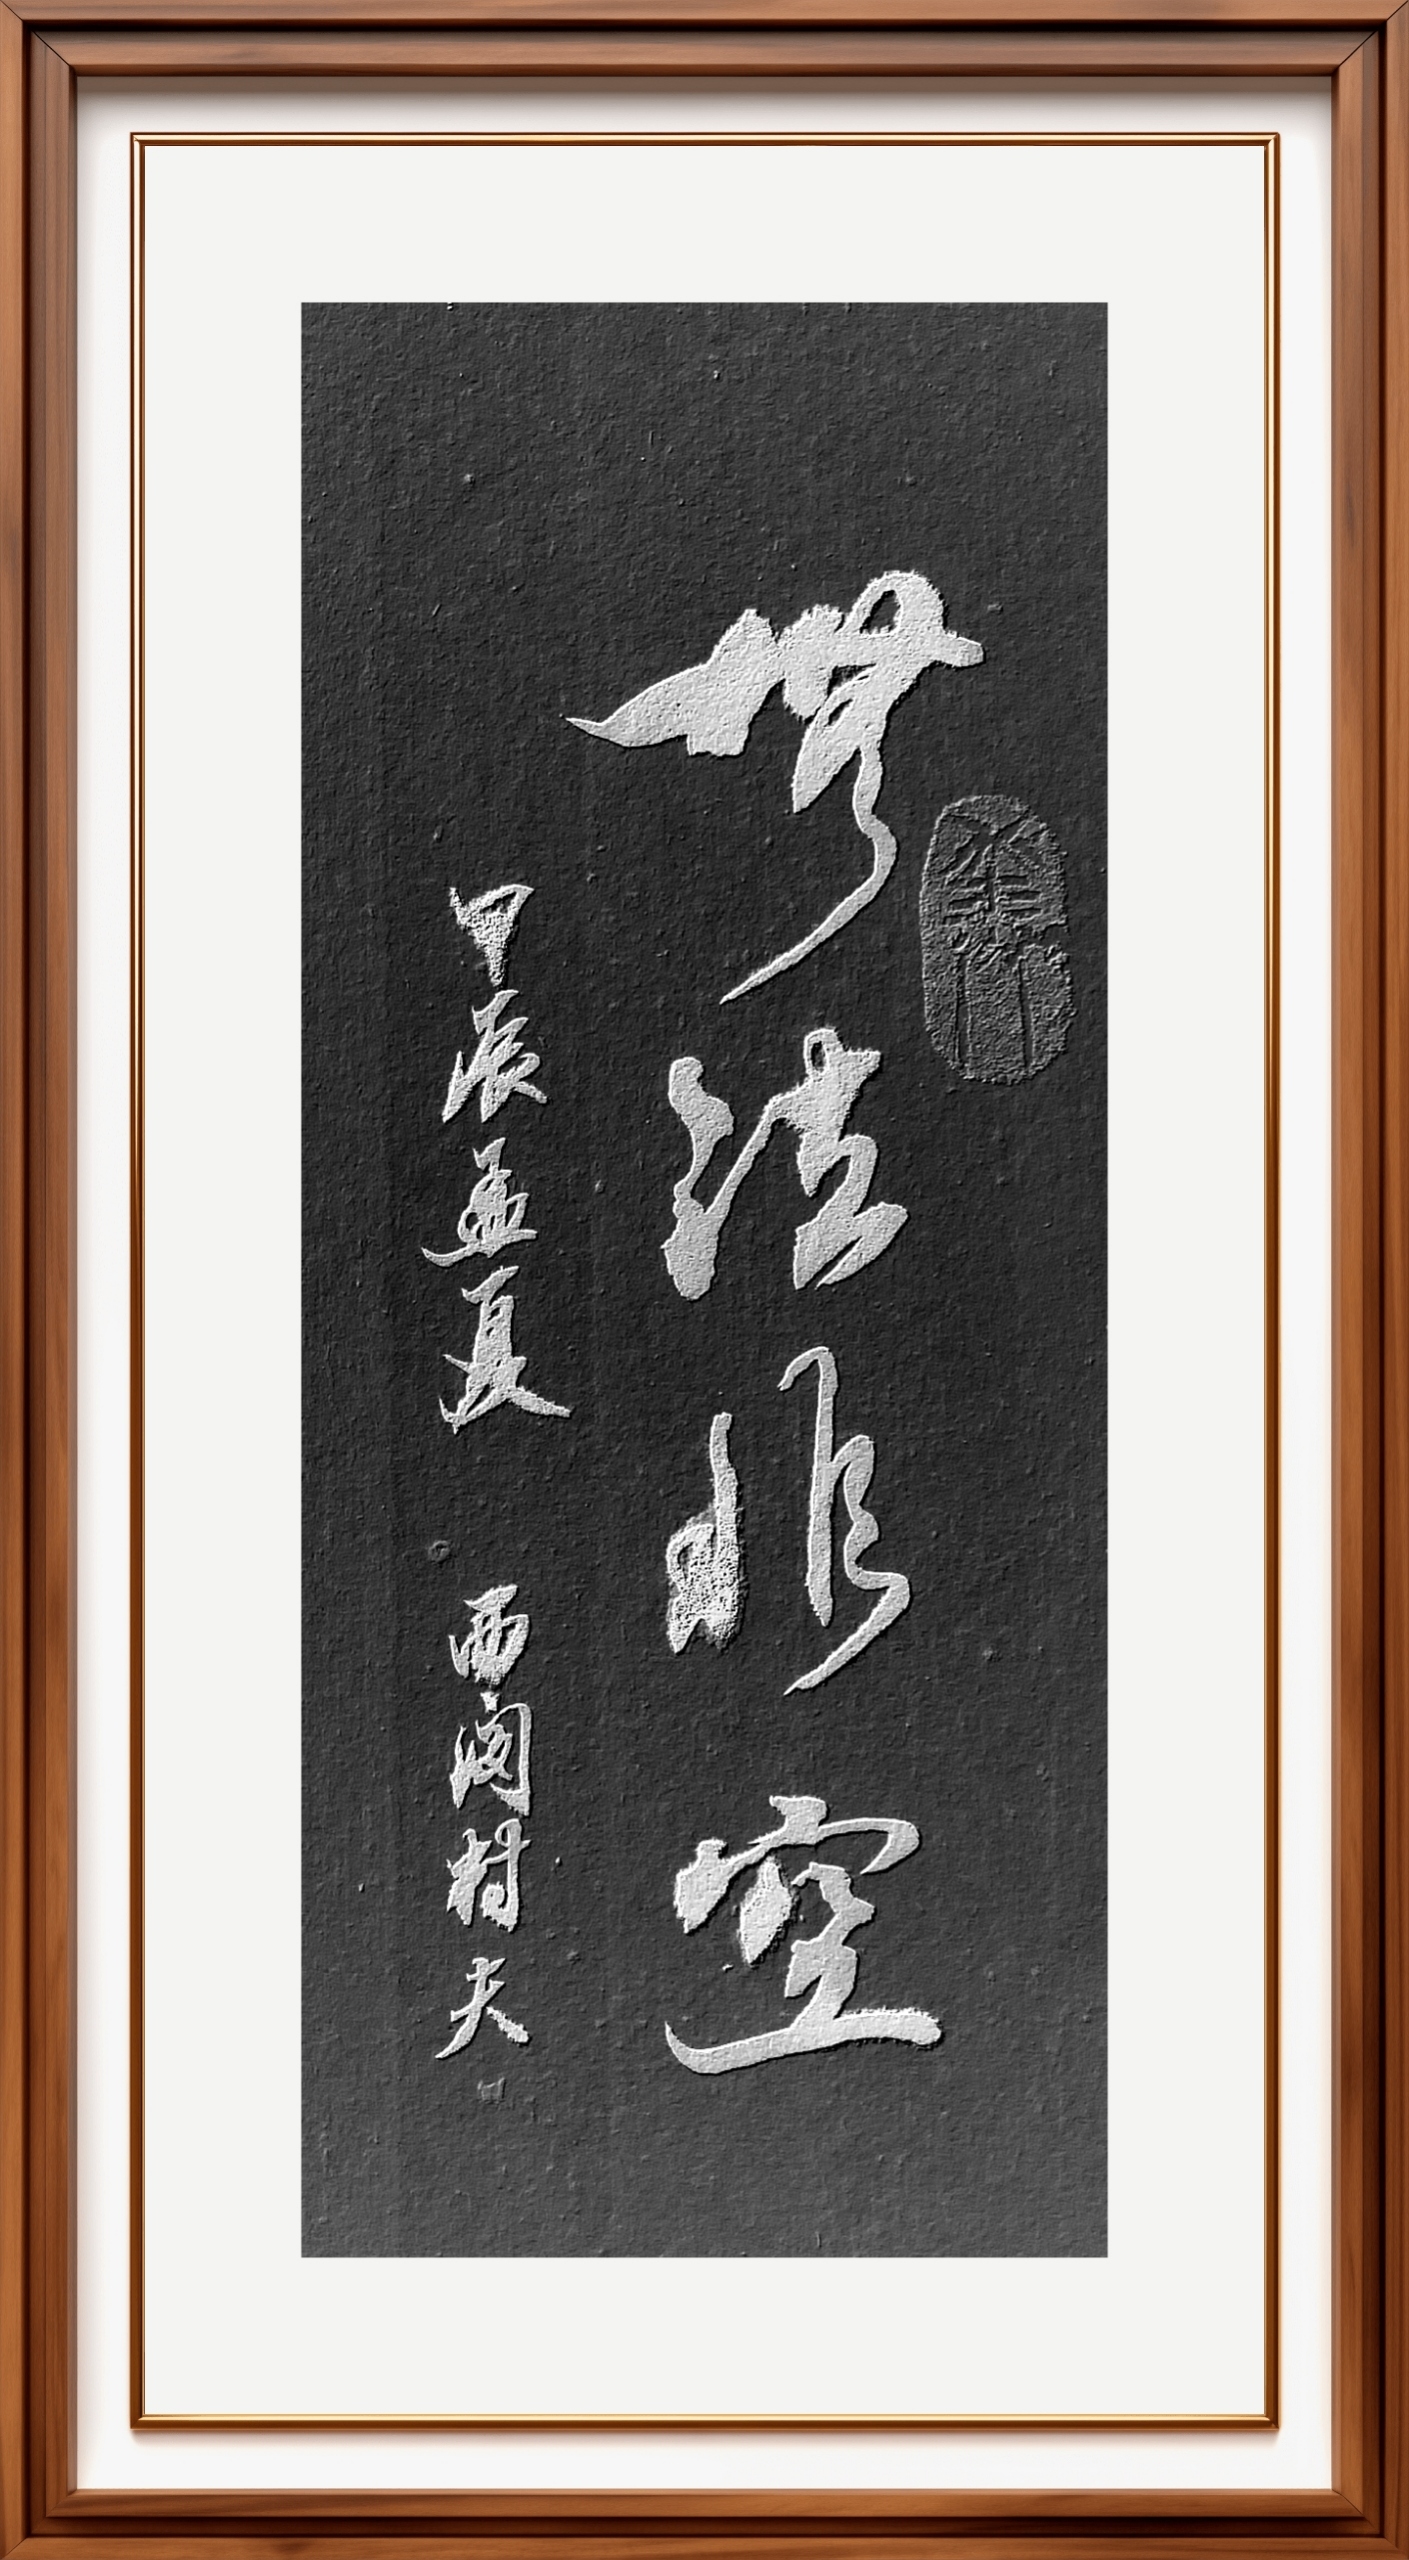 梦法非空
甲辰孟夏 西阁村夫